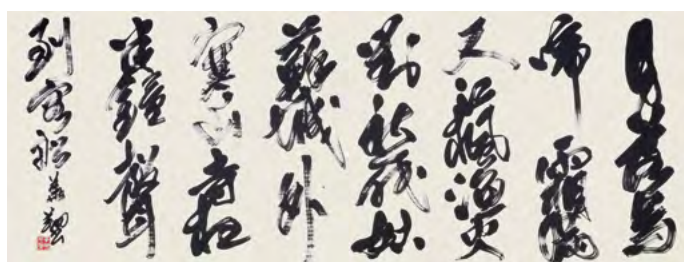 月落烏
啼霜滿
天江楓漁火
對愁眠姑
蘇城外
寒山寺夜
半鐘聲
到客船